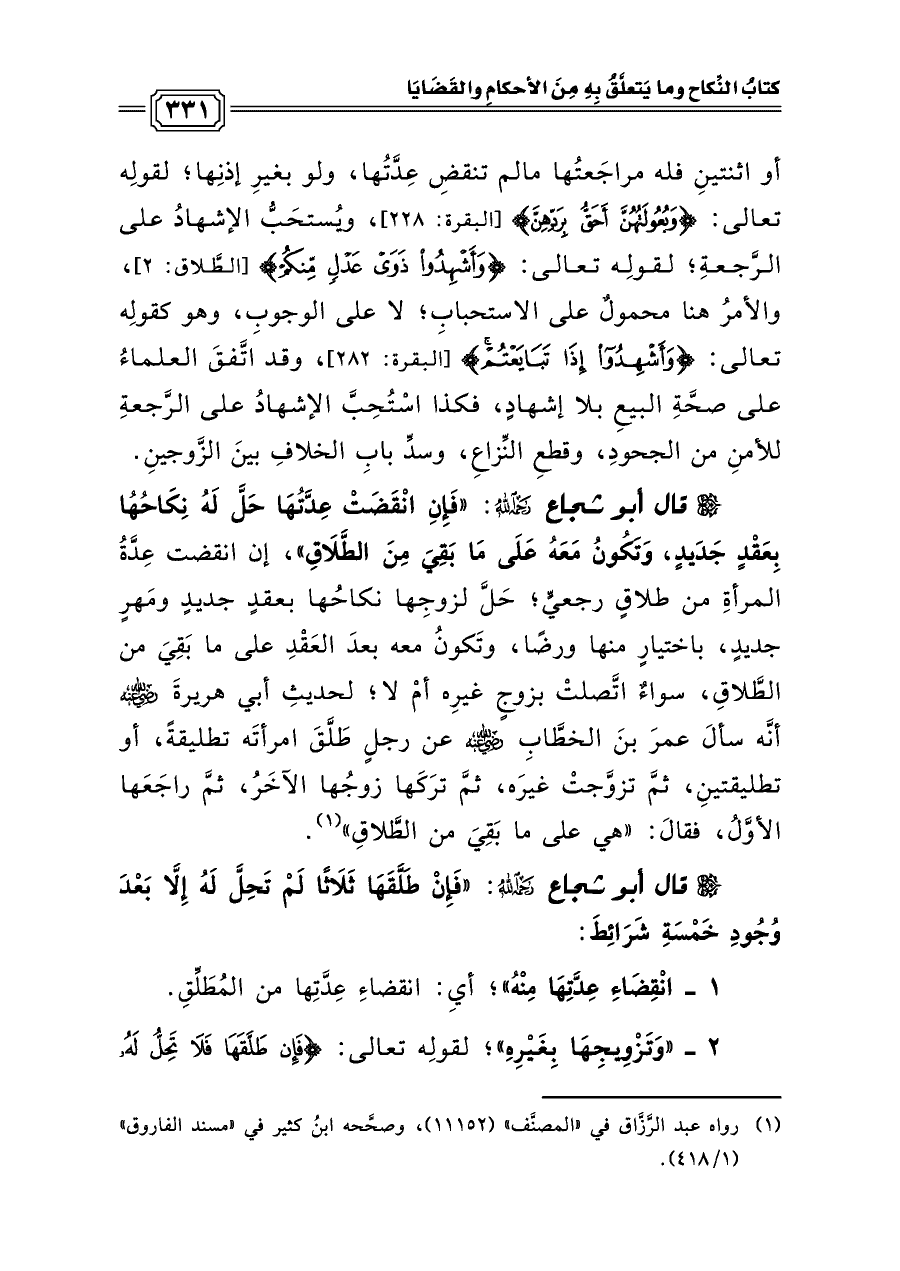 كتابُ النِّكاح وما يَتعلَّقُ بِهِ مِنَ الأحكامِ والقَضَايَا
٣٣١
أو اثنتينِ فله مراجَعتُها مالم تنقضِ عِدَّتُها، ولو بغيرِ إذنِها؛ لقولِه
تعالى: ﴿وَبُعُولَتُهُنَّ أَحَقُّ بِرَدِّهِنَّ﴾ [البقرة: ٢٢٨]، ويُستحَبُّ الإشهادُ على
الرَّجعةِ؛ لقولِه تعالى: ﴿وَأَشْهِدُوا۟ ذَوَىْ عَدْلٍ مِّنكُمْ﴾ [الطَّلاق: ٢]،
والأمرُ هنا محمولٌ على الاستحبابِ؛ لا على الوجوبِ، وهو كقولِه
تعالى: ﴿وَأَشْهِدُوٓا۟ إِذَا تَبَايَعْتُمْ ۚ﴾ [البقرة: ٢٨٢]، وقد اتَّفقَ العلماءُ
على صحَّةِ البيعِ بلا إشهادٍ، فكذا اسْتُحِبَّ الإشهادُ على الرَّجعةِ
للأمنِ من الجحودِ، وقطعِ النِّزاعِ، وسدِّ بابِ الخلافِ بينَ الزَّوجينِ.
قال أبو شجاع رَحِمَهُ اللَّهُ: «فَإِنِ انْقَضَتْ عِدَّتُهَا حَلَّ لَهُ نِكَاحُهَا
بِعَقْدٍ جَدَيدٍ، وَتَكُونُ مَعَهُ عَلَى مَا بَقِيَ مِنَ الطَّلَاقِ»، إن انقضت عِدَّةُ
المرأةِ من طلاقٍ رجعيٍّ؛ حَلَّ لزوجِها نكاحُها بعقدٍ جديدٍ ومَهرٍ
جديدٍ، باختيارٍ منها ورضًا، وتَكونُ معه بعدَ العَقْدِ على ما بَقِيَ من
الطَّلاقِ، سواءٌ اتَّصلتْ بزوجٍ غيرِه أمْ لا؛ لحديثِ أبي هريرةَ رَضِيَ اللَّهُ عَنْهُ
أنَّه سألَ عمرَ بنَ الخطَّابِ رَضِيَ اللَّهُ عَنْهُ عن رجلٍ طَلَّقَ امرأتَه تطليقةً، أو
تطليقتينِ، ثمَّ تزوَّجتْ غيرَه، ثمَّ تركَها زوجُها الآخَرُ، ثمَّ راجَعَها
الأوَّلُ، فقالَ: «هي على ما بَقِيَ من الطَّلاقِ»(١).
قال أبو شجاع رَحِمَهُ اللَّهُ: «فَإِنْ طَلَّقَهَا ثَلَاثًا لَمْ تَحِلَّ لَهُ إِلَّا بَعْدَ
وُجُودِ خَمْسَةِ شَرَائِطَ:
١ ـ انْقِضَاءِ عِدَّتِهَا مِنْهُ»؛ أي: انقضاءِ عِدَّتِها من المُطَلِّقِ.
٢ ـ «وَتَزْوِيجِهَا بِغَيْرِهِ»؛ لقولِه تعالى: ﴿فَإِن طَلَّقَهَا فَلَا تَحِلُّ لَهُۥ
(١) رواه عبد الرَّزَّاق في «المصنَّف» (١١١٥٢)، وصحَّحه ابنُ كثير في «مسند الفاروق»
(٤١٨/١).